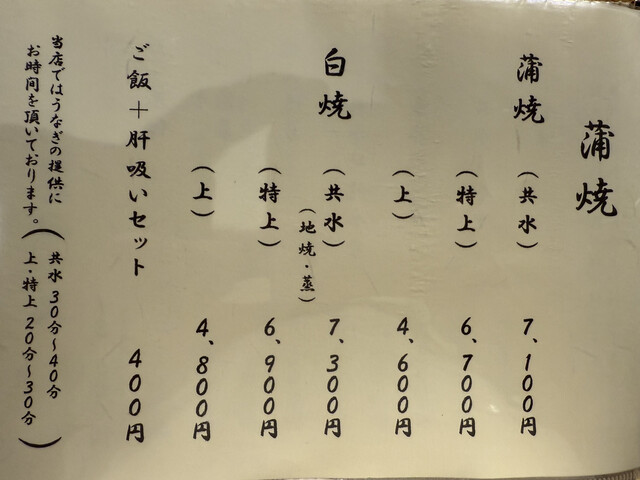 蒲焼
蒲焼 (共水) 7、100円
(特上) 6、700円
(上) 4、600円
白焼 (共水) 7、300円
(地焼・蒸)
(特上) 6、900円
(上) 4、800円
ご飯+肝吸いセット 400円
当店ではうなぎの提供に
お時間を頂いております。
(共水 30分~40分
上・特上 20分~30分)